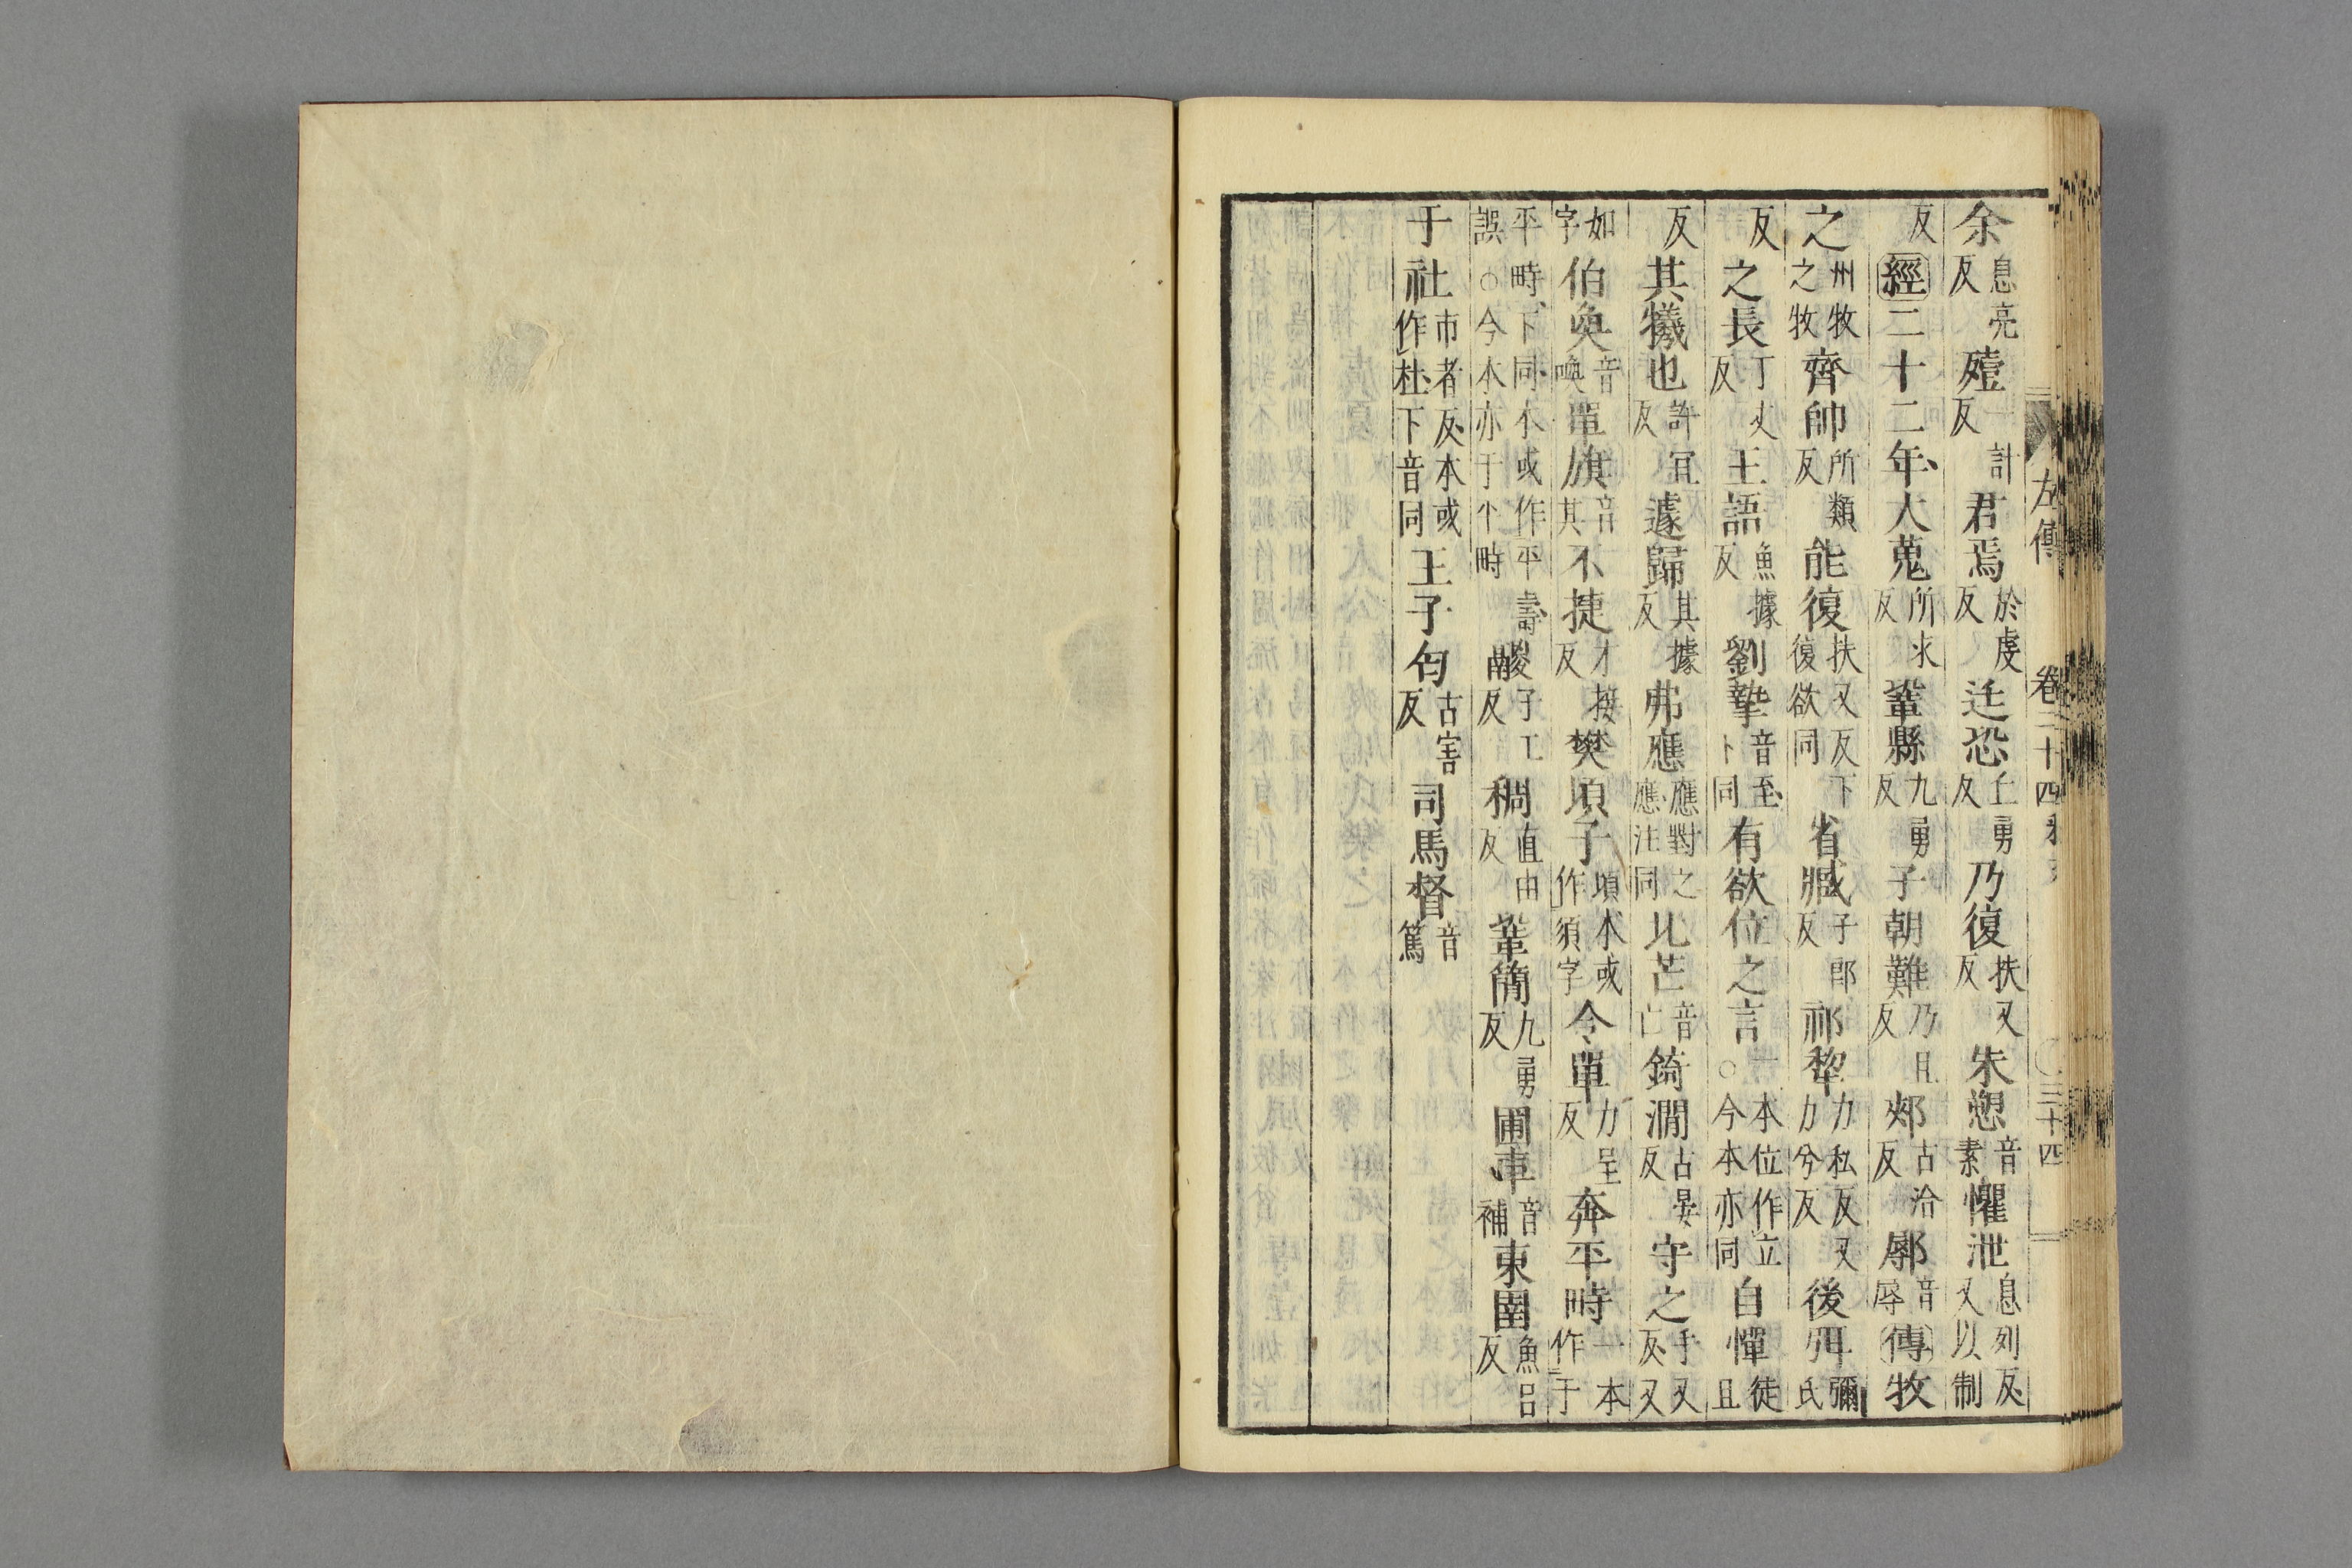 左傳 卷二十四 三十四
余息亮反殪一計反君焉於虔反迋恐丘勇反乃復扶又反朱愬音素懼泄息列反又以制
反經二十二年大蒐所求反鞏縣九勇反子朝難乃旦反郟古洽反㢲音辱傳牧
之州牧之牧齊帥所類反能復扶又反下復欲同省臧子郎反祁犂力私反又力兮反後弭彌氏
反之長丁丈反王語魚據反劉摯音至下同有欲位之言一本位作立○今本亦同自憚徒旦
反其犧也許宜反遽歸其據反弗應應對之應注同北芒音亡錡澗古晏反守之手又反又
如字伯奐音喚單旗音其不捷才接反樊頃子頃本或作須字令單力呈反奔平時一本作于
平時下同本或作平壽誤○今本亦于作時鬷子工反稠直由反鞏簡九勇反圃車音補東圉魚呂反
于社市者反本或作杜下音同王子匄古害反司馬督音篤